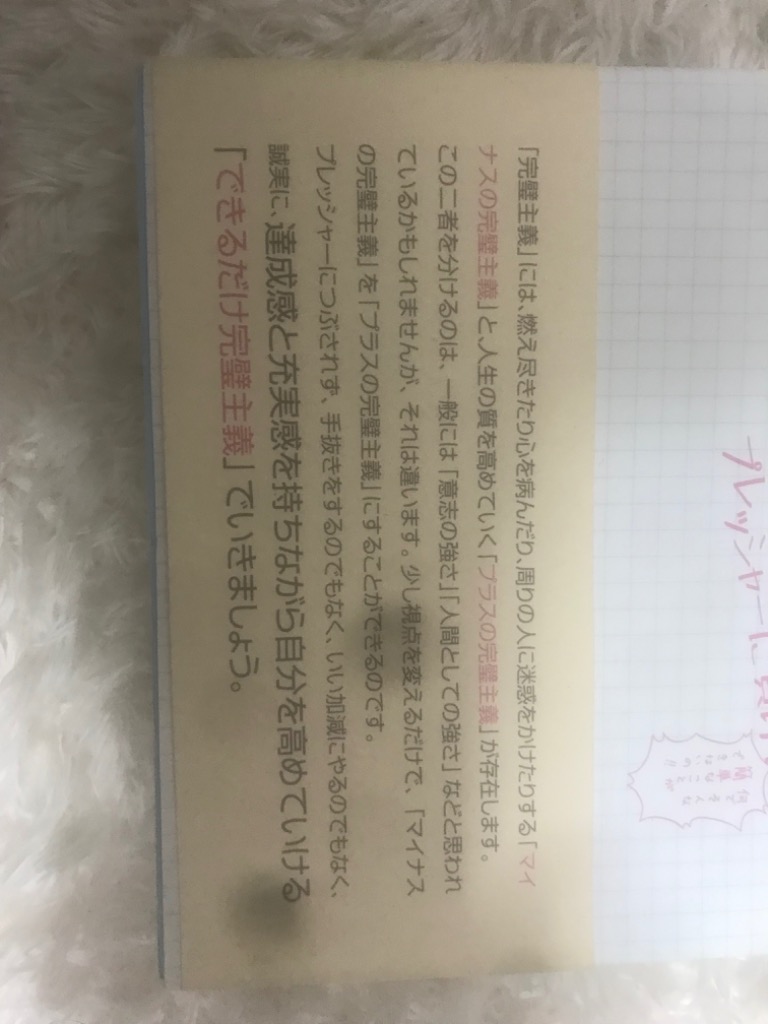 プレッシャーに
何でそんな
簡単なことが
できないの!?
「完璧主義」には、燃え尽きたり心を病んだり、周りの人に迷惑をかけたりする「マイ
ナスの完璧主義」と、人生の質を高めていく「プラスの完璧主義」が存在します。
この二者を分けるのは、一般には「意志の強さ」「人間としての強さ」などと思われ
ているかもしれませんが、それは違います。少し視点を変えるだけで、「マイナス
の完璧主義」を「プラスの完璧主義」にすることができるのです。
プレッシャーにつぶされず、手抜きをするのでもなく、いい加減にやるのでもなく、
誠実に、達成感と充実感を持ちながら自分を高めていける
「できるだけ完璧主義」でいきましょう。